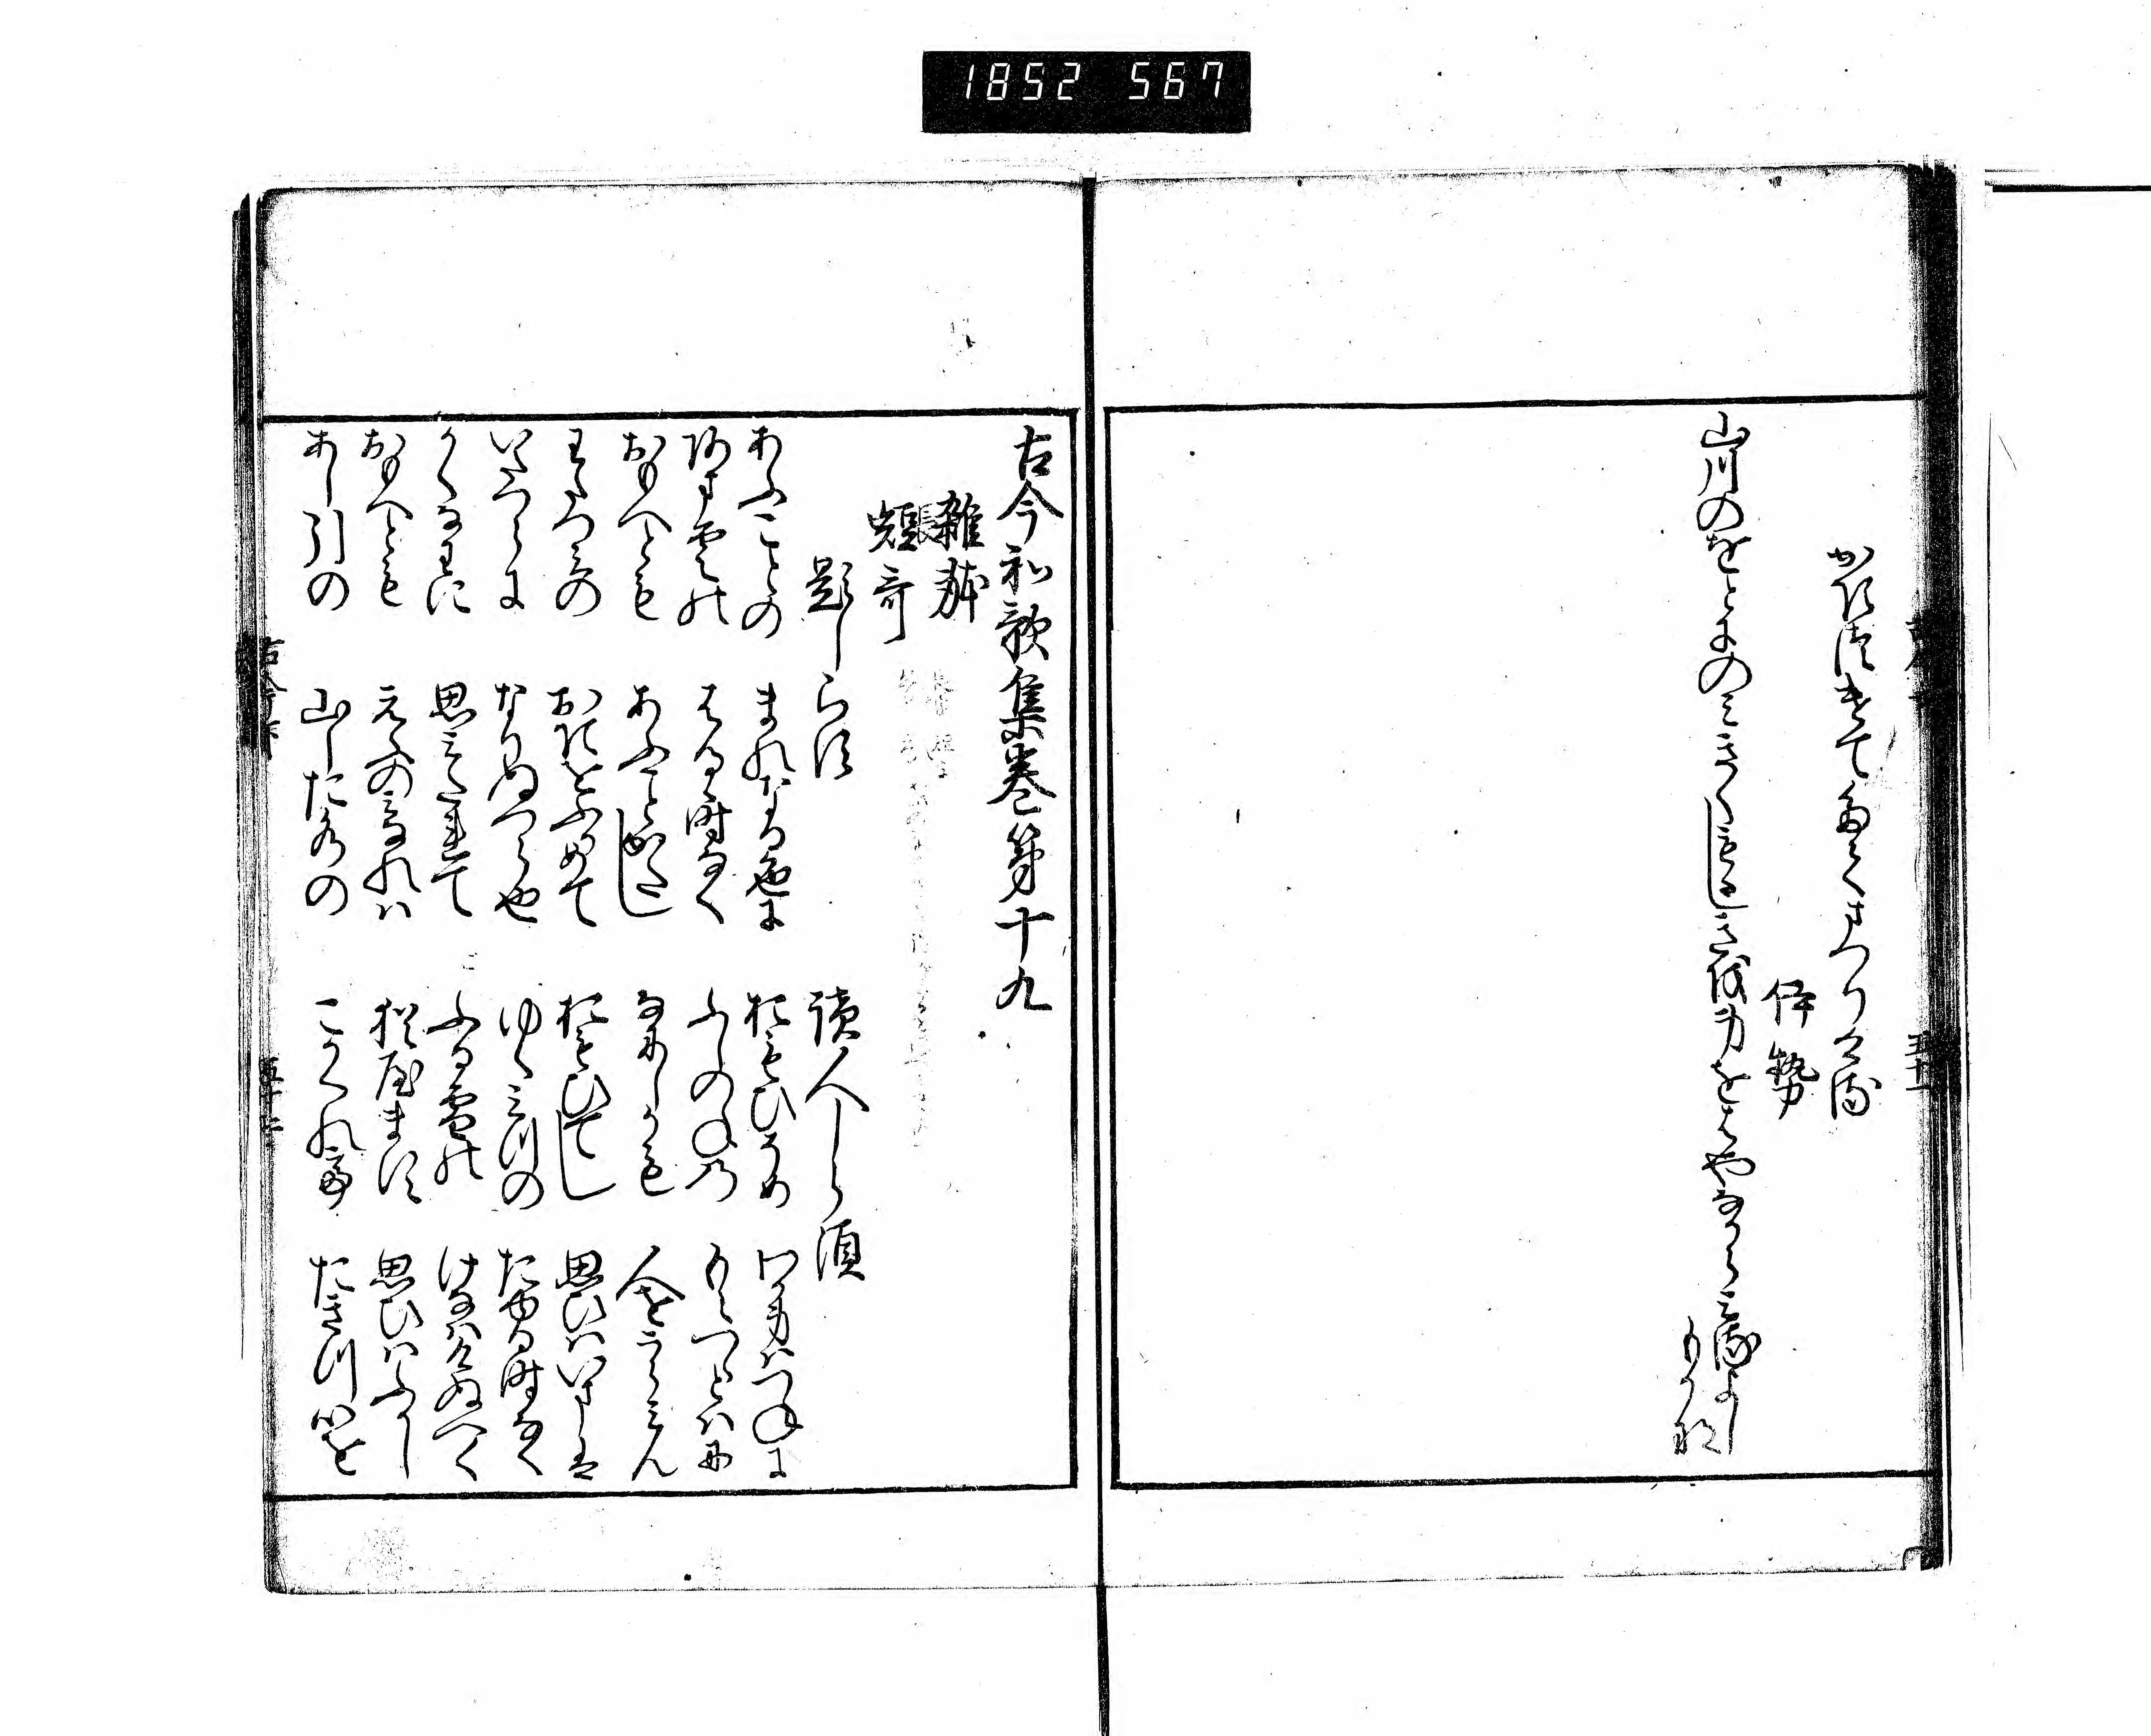 1852 567
かきつけてたてまつりける
伊勢
山川のをとにのみきくもゝしきを身をはやなからみるよし
もかな
古今和歌集巻第十九
雑躰
短哥
長
題しらす
読人しら須
あふことの まれなる色に おもひそめ わか身はつねに
あま雲の はるゝ時なく ふしのねの もえつゝとはに
おもへとも あふことかたし なにしかも 人をうらみん
わたつみの おきをふかめて おもひてし 思ひはいまは
いたつらに なりぬへら也 ゆく水の たゆる時なく
かくなわに 思みたれて ふる雪の けなはけぬへく
おもへとも えふの身なれは 猶やます 思ひはふかし
あし引の 山した水の こかくれて たきつ心を